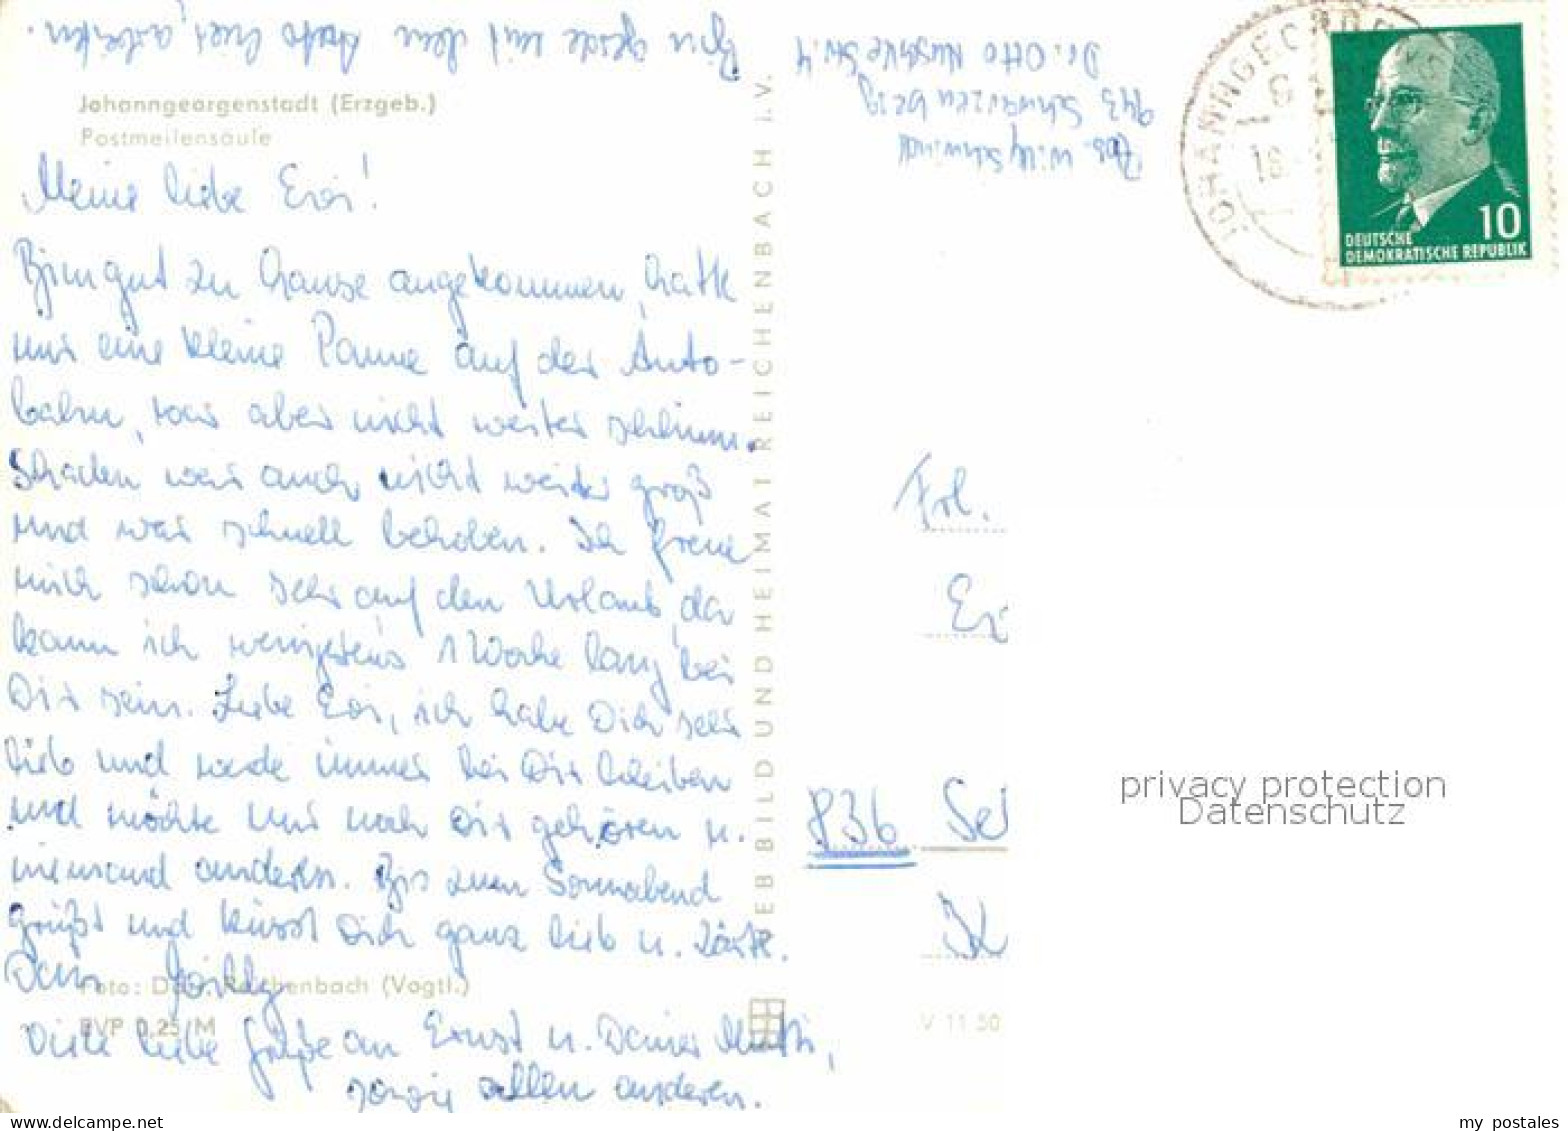 Bin gerade mit dem Auto hier, arbeiten.
Johanngeorgenstadt (Erzgeb.)
Postmeilensäule
Meine liebe Evi!
Bin gut zu Hause angekommen, hatte
nur eine kleine Panne auf der Auto-
bahn, war aber nicht weiter schlimm.
Schaden war auch nicht weiter groß
und war schnell behoben. Ich freue
mich schon sehr auf den Urlaub, da
kann ich wenigstens 1 Woche lang bei
Dir sein. Liebe Evi, ich habe Dich sehr
lieb und werde immer bei Dir bleiben
und möchte nur noch Dir gehören u.
niemand anderen. Bis zum Sonnabend
grüßt und küsst Dich ganz lieb u. zärtl.
Dein Willy
Foto: Reichenbach (Vogtl.)
EVP 0,25 M
Viele liebe Grüße an Ernst u. Deiner Mutti,
sowie allen anderen.
VEB BILD UND HEIMAT REICHENBACH I.V.
V 11 50
Abs. Willy Schwind
943 Schwarzenberg
Dr. Otto Nuschke Str. 4
JOHANNGEORGENSTADT
18
10
DEUTSCHE
DEMOKRATISCHE REPUBLIK
Frl.
836
privacy protection
Datenschutz
my postales